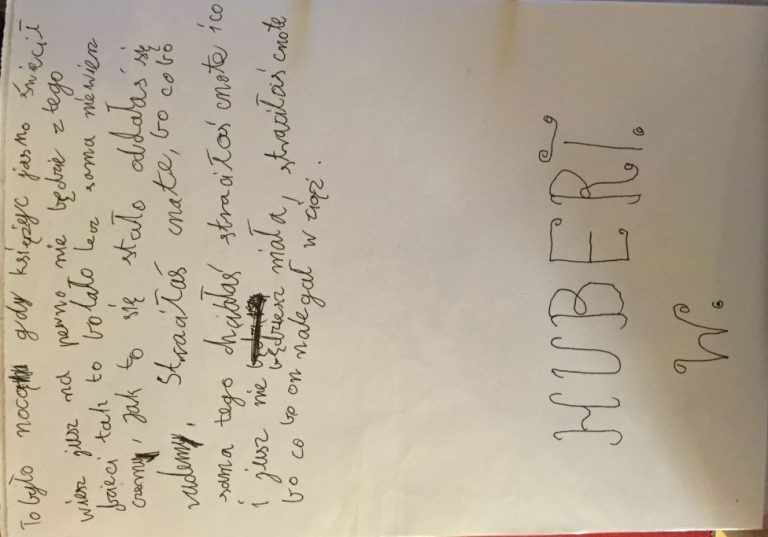 To było nocą gdy księżyc jasno świecił
wiesz jusz na pewno nie będzie z tego
dzieci tak to bolało lecz sama niewiesz
czemu, jak to się stało oddałaś się
straciłaś cnote, bo co bo
sama tego chciałaś straciłaś cnote ico
i jusz nie będziesz miała, straciłaś cnote
bo co bo on nalegał w ciąż.
HUBERT.
W.